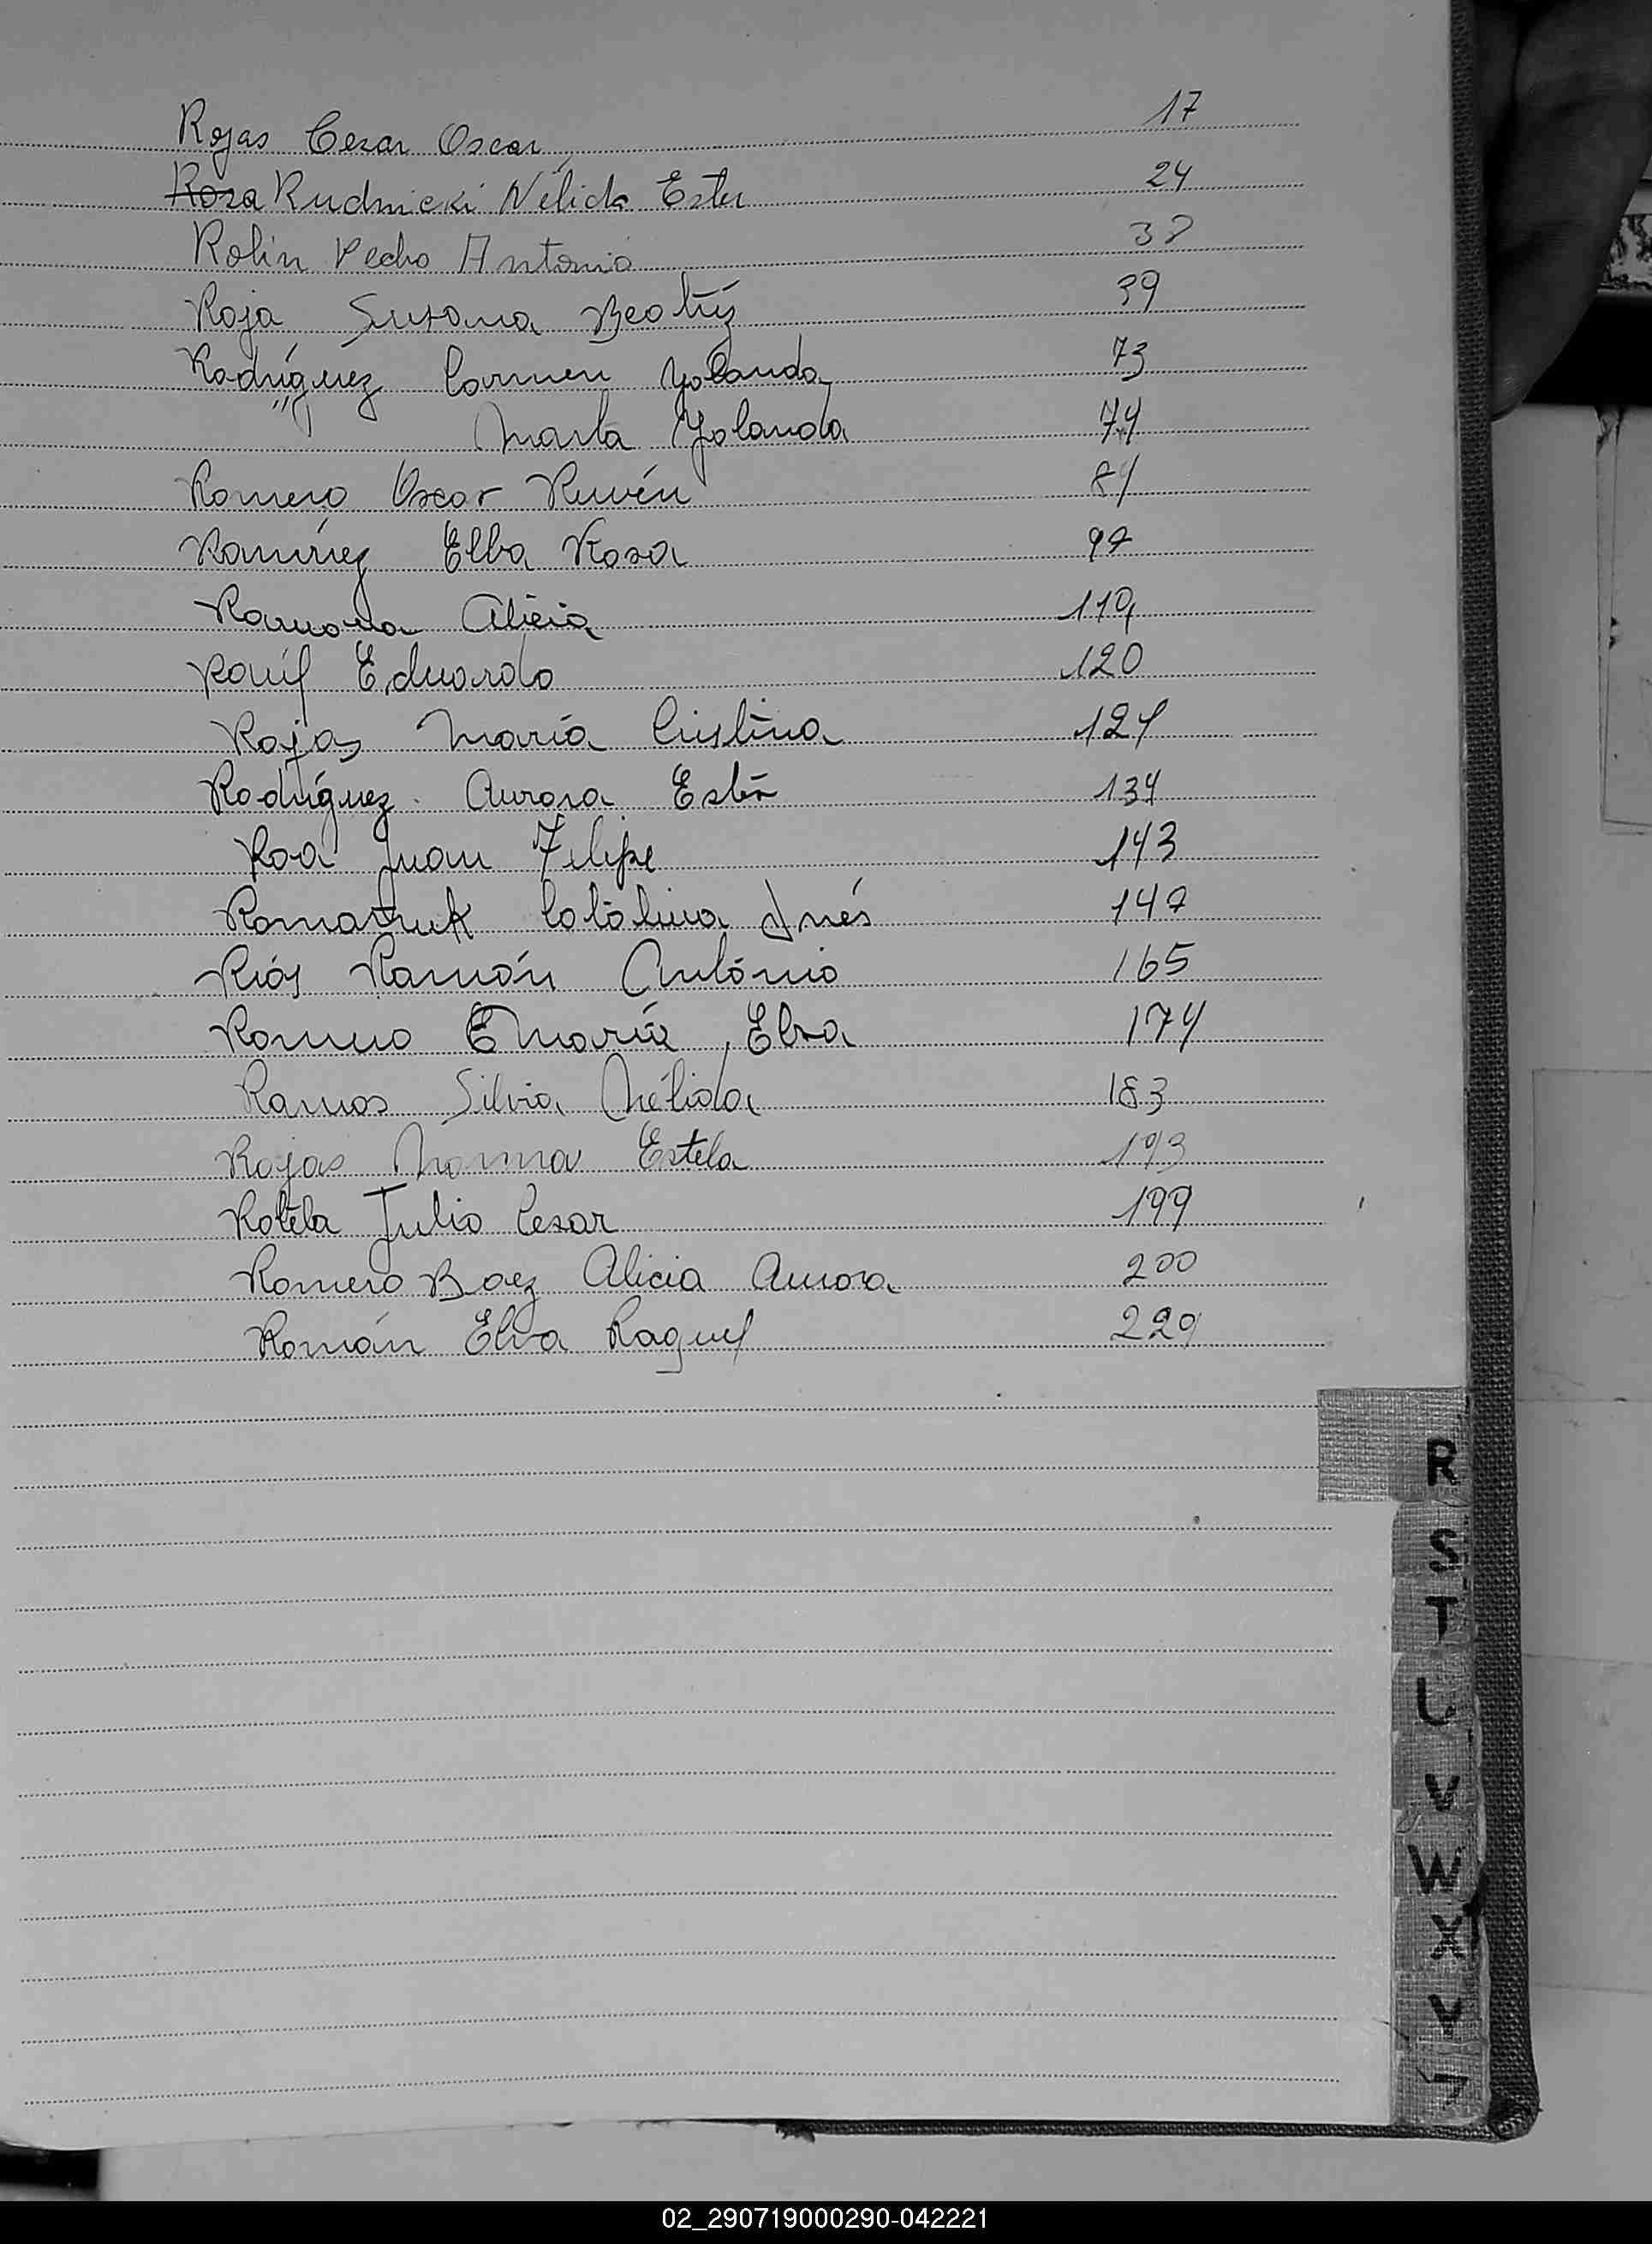 Rojas Cezar Oscar 17
Roza Rudnicki Nélida Ester 24
Rolin Pedro Antonio 38
Roja Susana Beatríz 39
Rodríguez Carmen Yolanda 73
" Marta Yolanda 74
Romero Oscar Ruvén 84
Ramírez Elba Rosa 97
Ramona Alicia 119
Raúl Eduardo 120
Rojas María Cristina 124
Rodríguez Aurora Ester 134
Roa Juan Felipe 143
Romaniuk Catalina Inés 147
Ríos Ramón António 165
Romero E María Elsa 174
Ramos Silvia Nélida 183
Rojas Norma Estela 193
Rotela Julio Cesar 199
Romero Baez Alicia Aurora 200
Román Elva Raquel 229
R
S
T
U
V
W
X
Y
Z
02_290719000290-042221